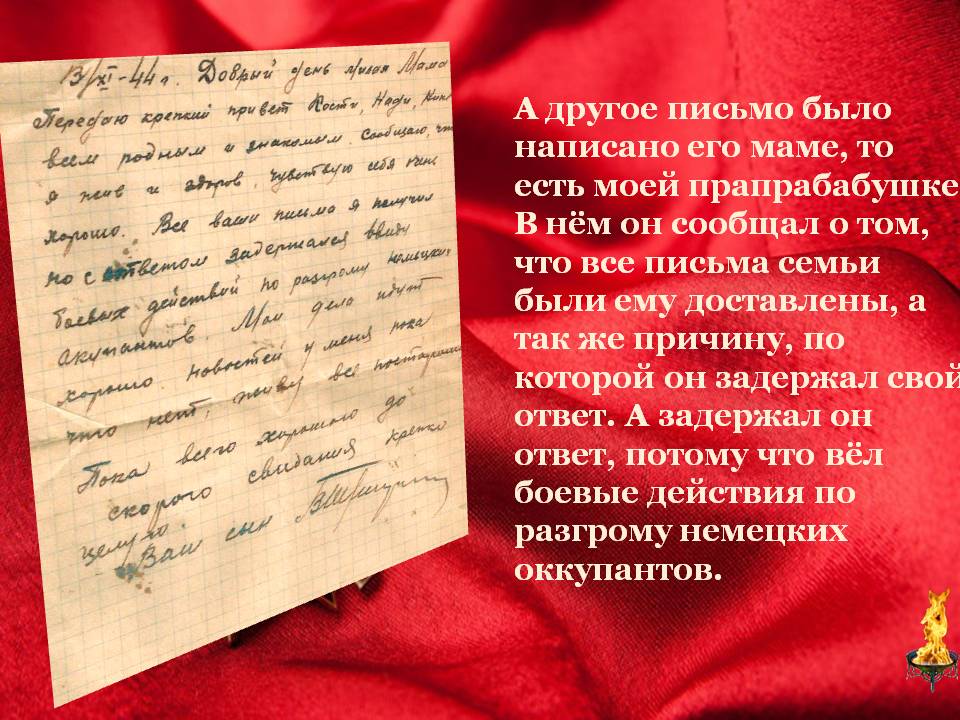 13/XI-44г. Добрый день милая Мама
Передаю крепкий привет Кости, Нади,
всем родным и знакомым. Сообщаю, что
я жив и здоров, чувствую себя
хорошо. Все ваши письма я получил
но с ответом задержался ввиду
боевых действий по разгрому немецких
акупантов. Мои дела идут
хорошо. Новостей у меня пока
что нет, живу все постарому
Пока всего хорошого до
скорого свидания крепко
целую.
Ваш сын
А другое письмо было
написано его маме, то
есть моей прапрабабушке
В нём он сообщал о том,
что все письма семьи
были ему доставлены, а
так же причину, по
которой он задержал свой
ответ. А задержал он
ответ, потому что вёл
боевые действия по
разгрому немецких
оккупантов.